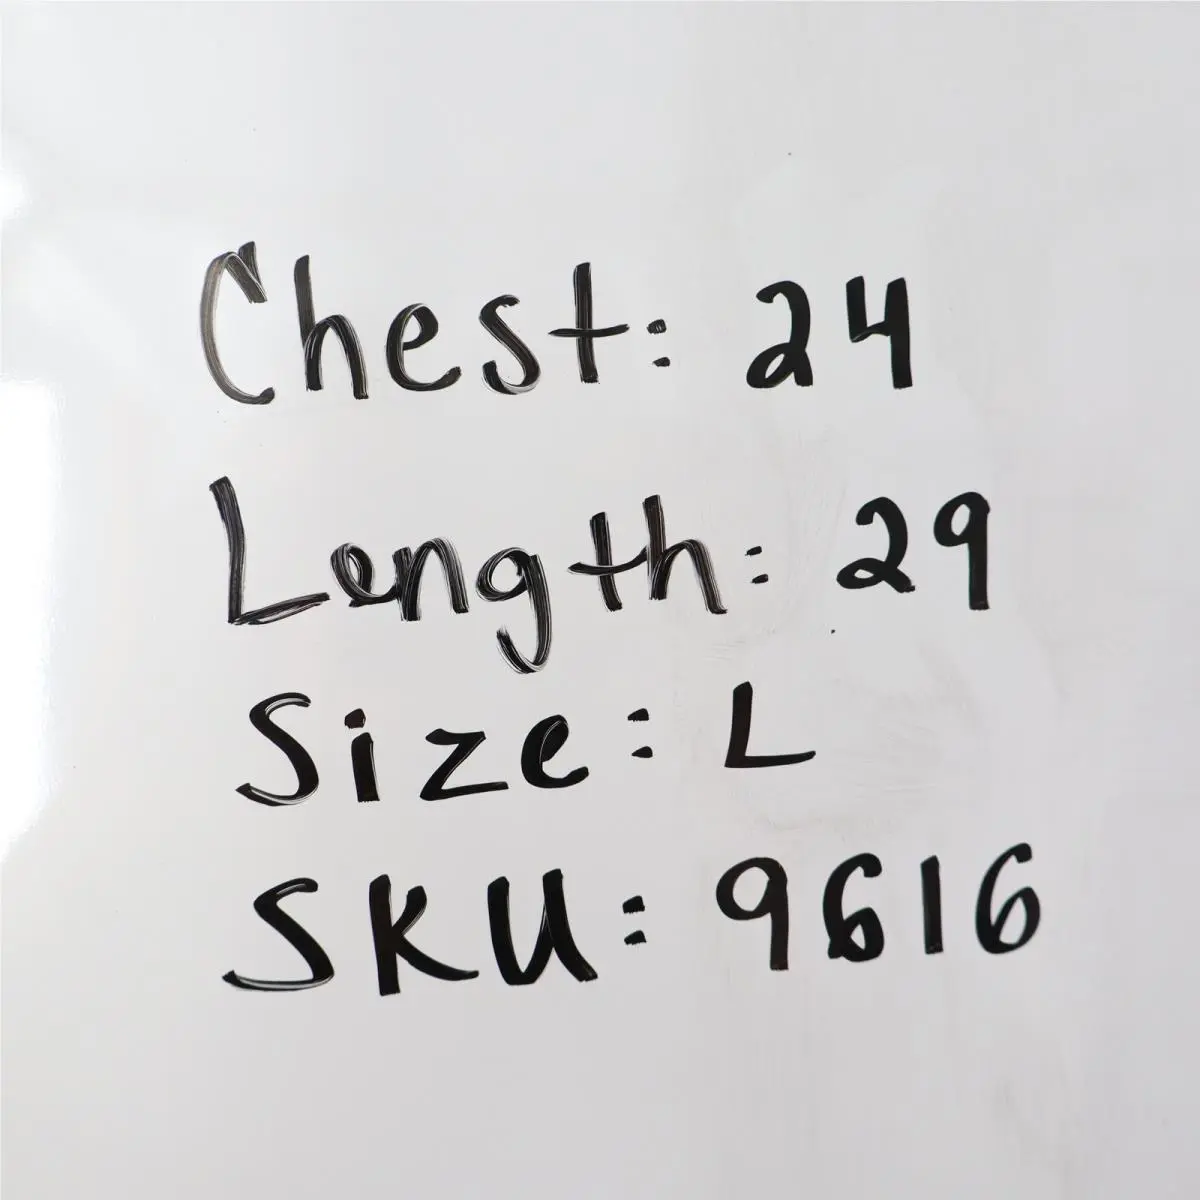 Chest: 24
Length: 29
Size: L
SKU: 9616